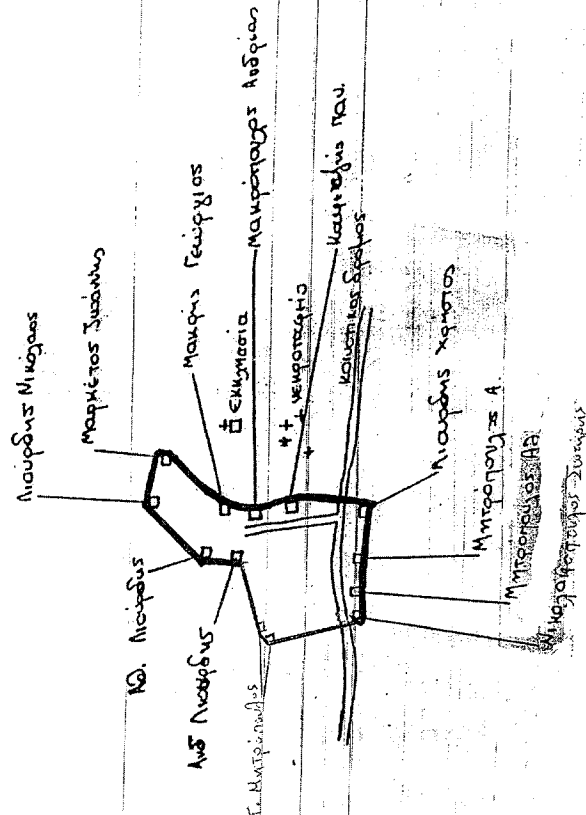 Λιούρδης Νικόλαος
Μαρκέτος Ιωάννης
Μακρής Γεώργιος
Εκκλησία
Μακρόπουλος Ανδρέας
νεκροταφείο
Παν.
κοινοτικός δρόμος
Λιούρδης Χρήστος
Μητρόπουλος Α.
Μητρόπουλος Αθ
Νικολακόπουλος Σωτήρης
Αθ. Λιούρδης
Λιούρδης
Γ. Μητρόπουλος